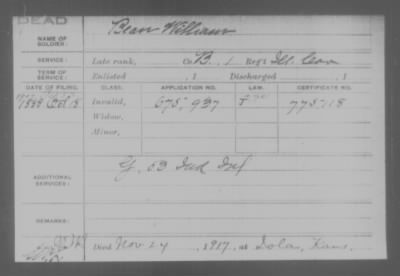 DEAD
NAME OF SOLDIER: Bean William
SERVICE: Late rank, Co. B, 1 Reg't Ill. Cav
TERM OF SERVICE: Enlisted , 1 Discharged , 1
DATE OF FILING. CLASS. APPLICATION NO. LAW. CERTIFICATE NO.
1888 Oct 18 Invalid, 675,937 775,718
Widow,
Minor,
ADDITIONAL SERVICES: G. 53 Ind Inf
REMARKS:
Died Nov 24, 1917, at Iola, Kans.